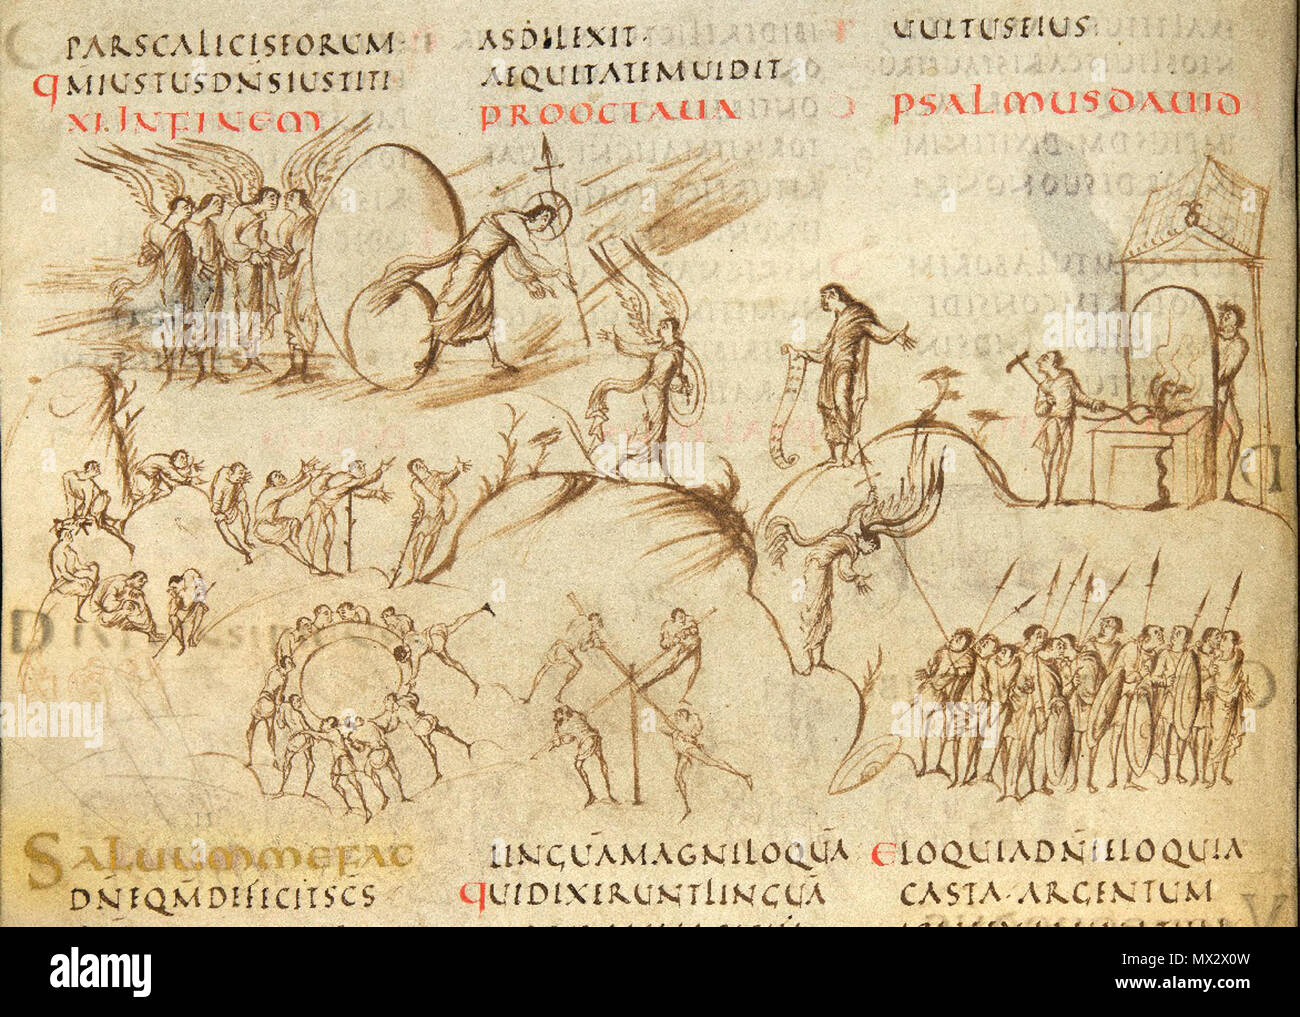 PARSCALICISEORUM
QMIUSTUSDN̄SIUSTITI
XI. INFINEM
ASDILEXIT·
AEQUITATEMUIDIT
PROOCTAUA
UULTUSEIUS
PSALMUSDAUID
SALUUMMEFAC
DN̄EQM̄DEFECITSC̄S
LINGUĀMAGNILOQUĀ
QUIDIXERUNTLINGUĀ
ELOQUIADN̄IELOQUIA
CASTA·ARGENTUM
alamy
Image ID: MX2X0W
www.alamy.com